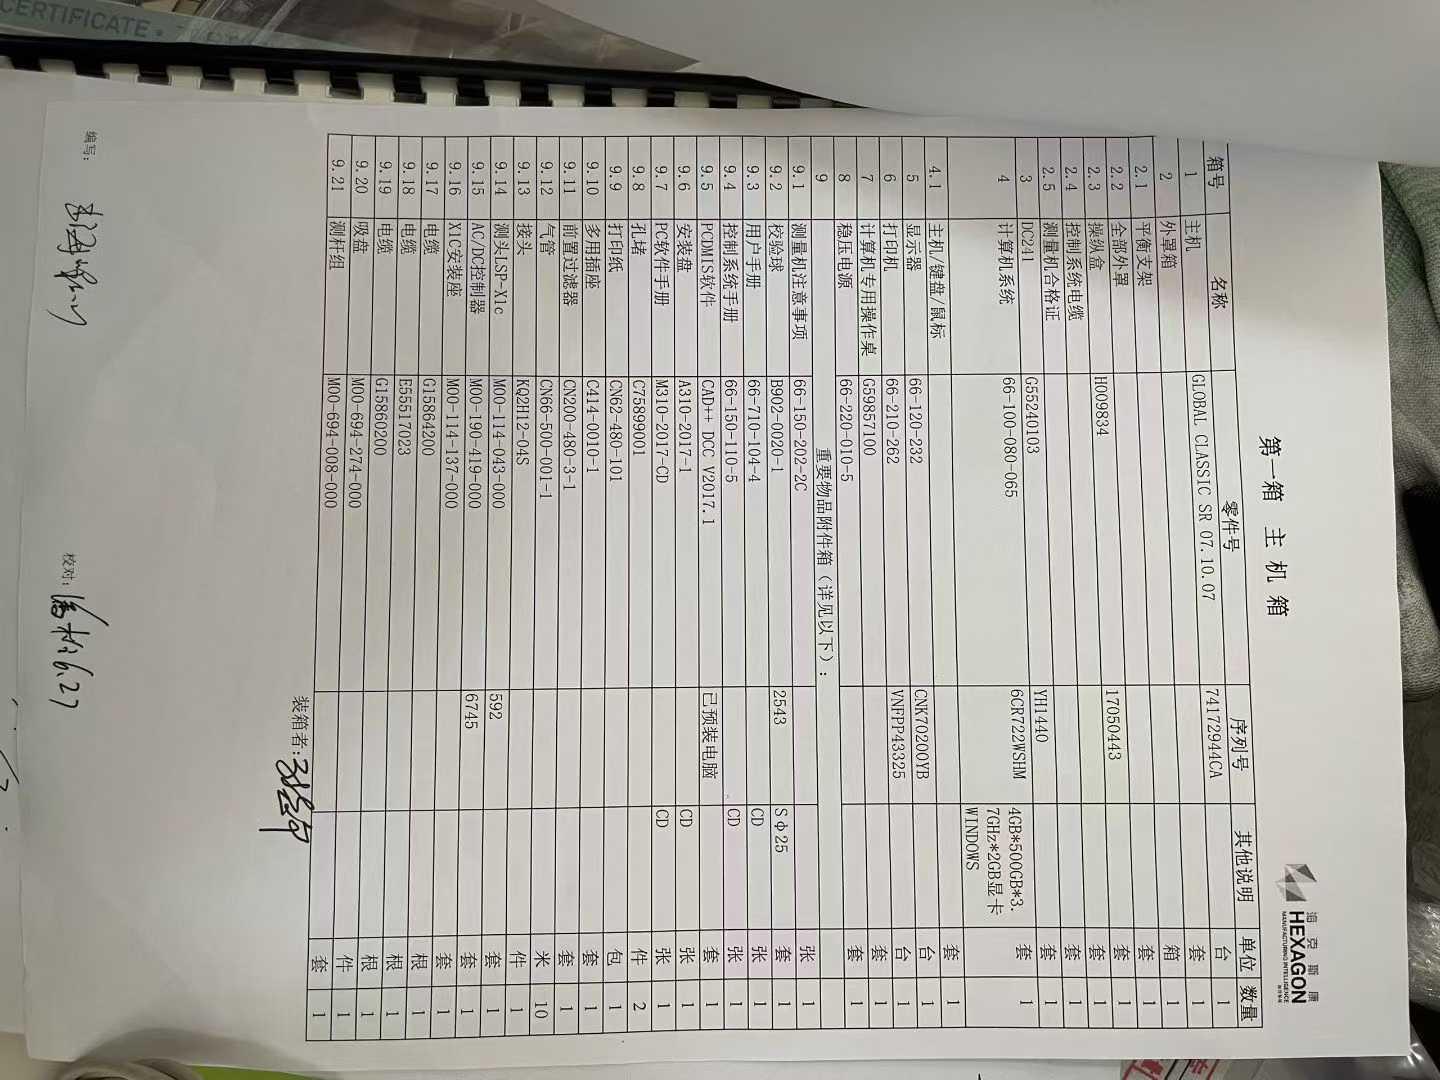 CERTIFICATE
海克斯康
HEXAGON
MANUFACTURING INTELLIGENCE
第一箱 主机箱
箱号 名称 零件号 序列号 其他说明 单位 数量
1 主机 GLOBAL CLASSIC SR 07.10.07 74172944CA 台 1
2 外罩箱 套 1
2.1 平衡支架 箱 1
2.2 全部外罩 套 1
2.3 操纵盒 H009834 17050443 套 1
2.4 控制系统电缆 套 1
2.5 测量机合格证 套 1
3 DC241 G55240103 YH1440 套 1
4 计算机系统 66-100-080-065 6CR722WSHM 4GB*500GB*3.
7GHz*2GB显卡
WINDOWS 套 1
4.1 主机/键盘/鼠标 套 1
5 显示器 66-120-232 CNK70200YB 台 1
6 打印机 66-210-262 VNFPP43325 台 1
7 计算机专用操作桌 G59857100 套 1
8 稳压电源 66-220-010-5 套 1
9 重要物品附件箱（详见以下）：
9.1 测量机注意事项 66-150-202-2C 张 1
9.2 校验球 B902-0020-1 2543 Sφ25 套 1
9.3 用户手册 66-710-104-4 CD 张 1
9.4 控制系统手册 66-150-110-5 CD 张 1
9.5 PCDMIS软件 CAD++ DCC V2017.1 已预装电脑 套 1
9.6 安装盘 A310-2017-1 CD 张 1
9.7 PC软件手册 M310-2017-CD CD 张 1
9.8 孔堵 C75899001 件 2
9.9 打印纸 CN62-480-101 包 1
9.10 多用插座 C414-0010-1 套 1
9.11 前置过滤器 CN200-480-3-1 套 1
9.12 气管 CN66-500-001-1 米 10
9.13 接头 KQ2H12-04S 件 1
9.14 测头LSP-X1c M00-114-043-000 592 套 1
9.15 AC/DC控制器 M00-190-419-000 6745 套 1
9.16 X1C安装座 M00-114-137-000 套 1
9.17 电缆 G15864200 根 1
9.18 电缆 E55517023 根 1
9.19 电缆 G15860200 根 1
9.20 吸盘 M00-694-274-000 件 1
9.21 测杆组 M00-694-008-000 套 1
装箱者:
编写: 校对: 6.27